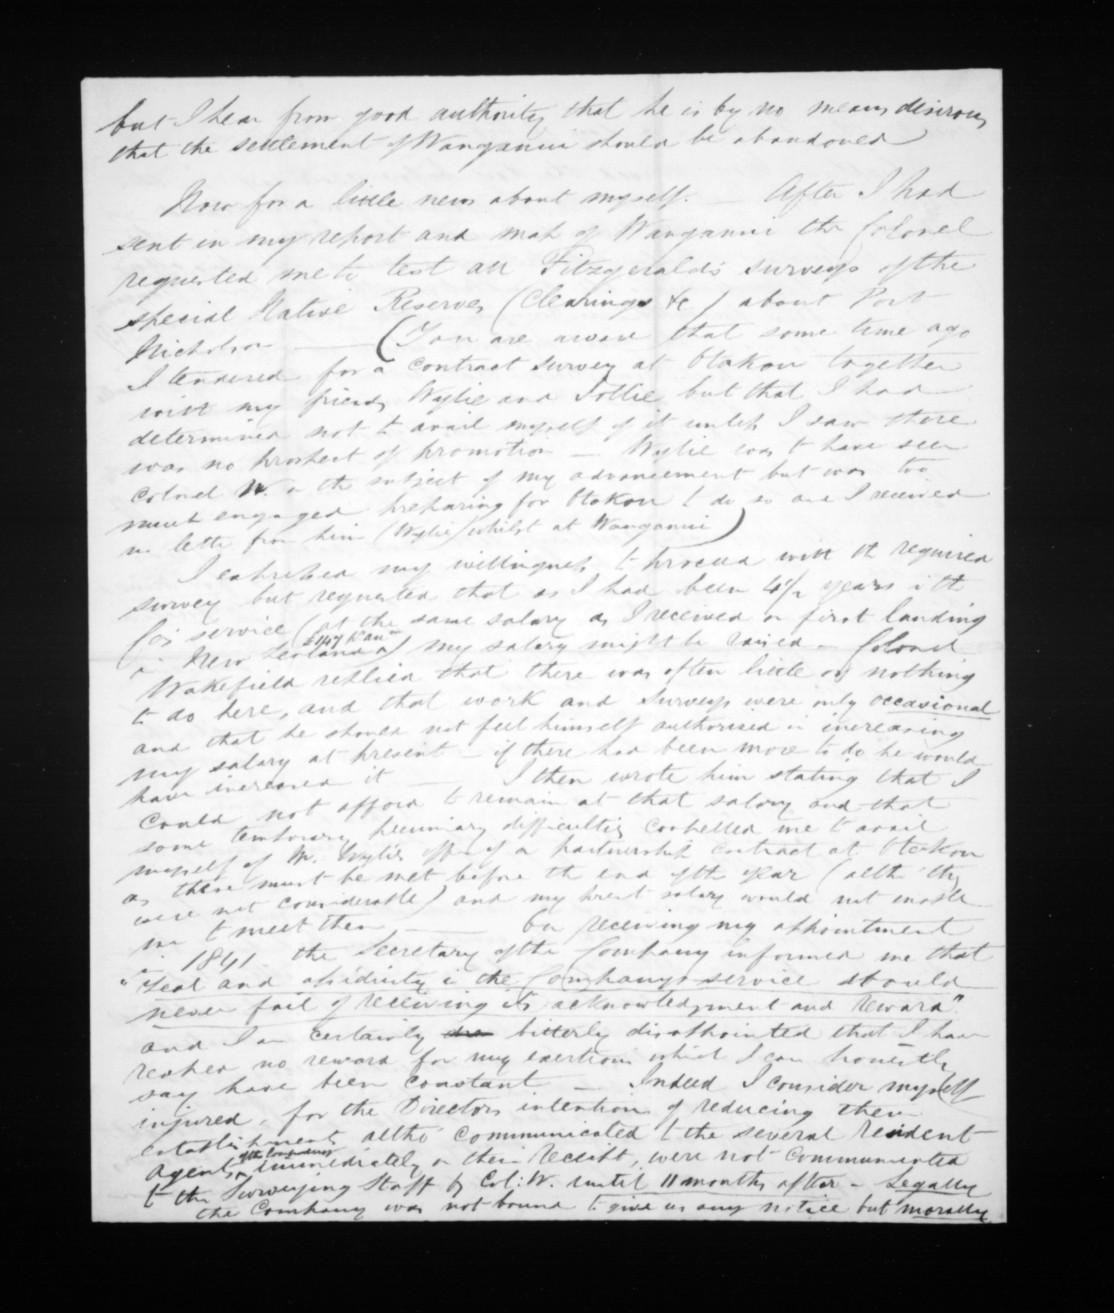 but I hear from good authority that he is by no means desirous
that the settlement of Wanganui should be abandoned
Now for a little news about myself. — After I had
sent in my report and map of Wanganui the Colonel
requested me to test all Fitzgerald's surveys of the
special Native Reserves (Clearings &c) about Port
Nicholson — (You are aware that some time ago
I tendered for a contract survey at Otakou together
with my friends Wylie and Jollie but that I had
determined not to avail myself of it unless I saw there
was no prospect of promotion — Wylie was to have seen
Colonel W. on the subject of my advancement but was too
much engaged preparing for Otakou to do so and I received
no letter from him (Wylie) whilst at Wanganui)
I expressed my willingness to proceed with the required
survey but requested that as I had been 4½ years in the
Co's service (at the same salary as I received on first landing
in New Zealand £147 p an) my salary might be raised — Colonel
Wakefield replied that there was often little or nothing
to do here, and that work and surveys were only occasional
and that he should not feel himself authorised in increasing
my salary at present — if there had been more to do he would
have increased it — I then wrote him stating that I
could not afford to remain at that salary and that
some temporary pecuniary difficulties compelled me to avail
myself of Mr. Wylie's offer of a partnership contract at Otakou
as these must be met before the end of the year (altho' they
were not considerable) and my present salary would not enable
me to meet them — On receiving my appointment
in 1841 the Secretary of the Company informed me that
"Zeal and assiduity in the Company's service should
never fail of receiving its acknowledgment and reward"
and I am certainly bitterly disappointed that I have
reaped no reward for my exertions which I can honestly
say have been constant — Indeed I consider myself
injured, for the Directors intention of reducing their
establishments altho' communicated to the several resident
agents of the Company immediately on their receipt, were not communicated
to the Surveying Staff by Col: W. until 11 months after — Legally
the Company was not bound to give us any notice but morally